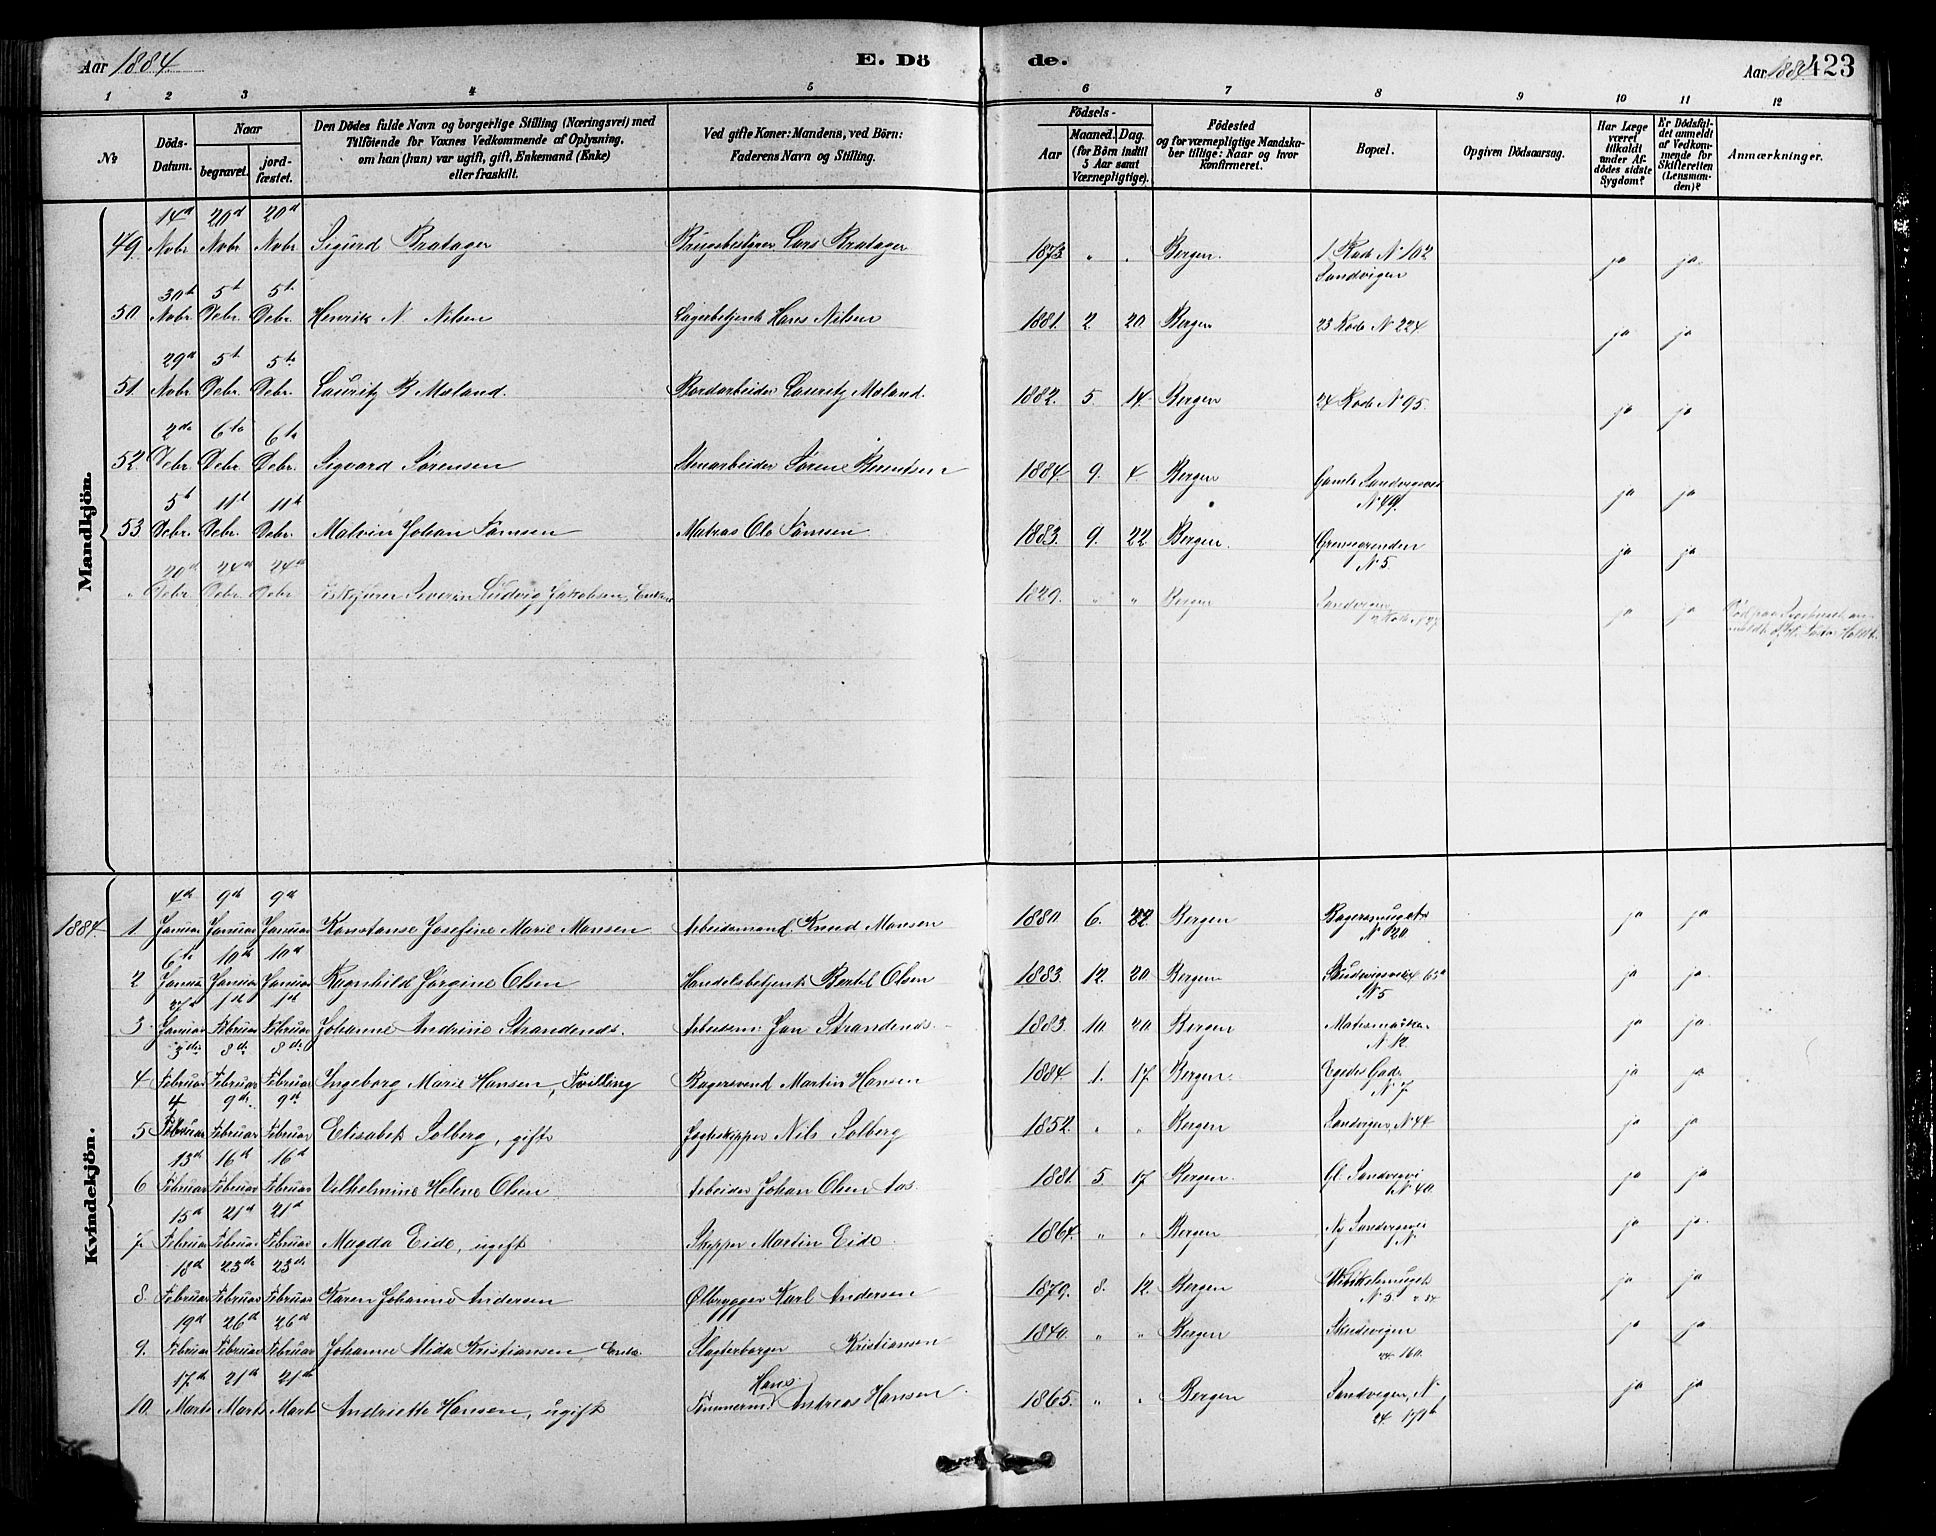 Aar 1884 E. Dö de. Aar 1884 423
1 2 3 4 5 6 7 8 9 10 11 12
No Döds-Datum. Naar begravet. jordfæstet. Den Dödes fulde Navn og borgerlige Stilling (Næringsvei) med Tilföiende for Voxnes Vedkommende af Oplysning, om han (hun) var ugift, gift, Enkemand (Enke) eller fraskilt. Ved gifte Koner: Mandens, ved Börn: Faderens Navn og Stilling. Födsels- Aar Maaned. Dag. (for Börn indtil 5 Aar samt Værnepligtige). Födested og for værnepligtige Mandskaber tillige: Naar og hvor konfirmeret. Bopæl. Opgiven Dödsaarsag. Har Læge været tilkaldt under Afdödes sidste Sygdom? Er Dödsfaldet anmeldt af Vedkommende for Skifteretten (Lensmanden)? Anmærkninger.
Mandkjön.
14d 20d 20d
49. Novbr. Novbr. Novbr. Sigurd Bratager Brugsbestyrer Lars Bratager 1873 " " Bergen. 1 Rode N 102 Sandvigen ja ja
30t 5t 5t
50. Novbr. Debr. Debr. Henrik N. Nilsen Lagerbetjent Hans Nilsen 1881. 2 20 Bergen 23 Rode N 224 ja ja
29d 5t 5te
51. Novbr. Debr. Debr. Lauritz B Moland. Bordarbeider Lauritz Moland. 1882. 5. 14. Bergen 24 Rode N 95. ja ja
2de 6te 6te
52. Debr. Debr. Debr. Sigvard Sørensen Stenarbeider Søren Berentsen 1884. 9. 4. Bergen Gamle Sandvigsvei N 49. ja ja
5t 11t 11te
53. Debr. Debr. Debr. Malvin Johan Tømsen Matros Ole Tømsen 1883. 9. 22 Bergen. N 5. ja ja
20d 24d 24de
" Debr. Debr. Debr. Severin Ludvig Jakobsen, Enkem 1829. " " Bergen Sandvigen Rode N 27 ja ja
Kvindekjön.
4de 9d 9d
1884. 1. Januar Januar Januar Konstanse Josefine Marie Monsen Arbeidsmand. Knud Monsen 1880 6. 22. Bergen Bagersmuget N 20 ja ja
6te 10de 10d
2 Januar Januar Januar Ragnhild Jørgine Olsen Handelsbetjent Bertel Olsen 1883 12. 20 Bergen N 5 ja ja
27d 1st 1st
3. Januar Februar Februar Johanne Andrine Strandenes. Arbeidsm. Jan Strandenes. 1883. 10. 20 Bergen N 12. ja ja
3die 8de 8de
4 Februar Februar Februar Ingeborg Marie Hansen, Tvilling Bagersvend Martin Hansen 1884. 1. 17. Bergen Egedes Gade N 7 ja ja
4 9de 9d
5 Februar Februar Februar Elisabeth Solberg, gift Jagtskipper Nils Solberg 1852. " " Bergen Sandvigen, N 44 ja ja
13d 16d 16d
6 Februar Februar Februar Vilhelmine Helene Olsen Arbeider Johan Olsen Aas. 1881. 5. 17 Bergen. Gl. Sandvigsvei N 40. ja ja
15d 21d 21d
7. Februar Februar Februar Magda Eide, ugift Skipper Martin Eide. 1864. " " Bergen Ny Sandvigsvei N ja ja
18d 23de 23de
8. Februar Februar Februar Karen Johanne Andersen Ølbrygger Karl Andersen 1879. 8. 12. Bergen N 5. ja ja
19d 26d 26d
9. Februar Februar Februar Johanne Alida Kristiansen, Enke Slagterborger Kristiansen 1840. " " Bergen Skudevigen 24 160. ja ja
17de 21de 21de
10. Marts Marts Marts Andriette Hansen, ugift Tømmermd Hans Andreas Hansen. 1865. " " Bergen Sandvigen, N 24. 179b ja ja